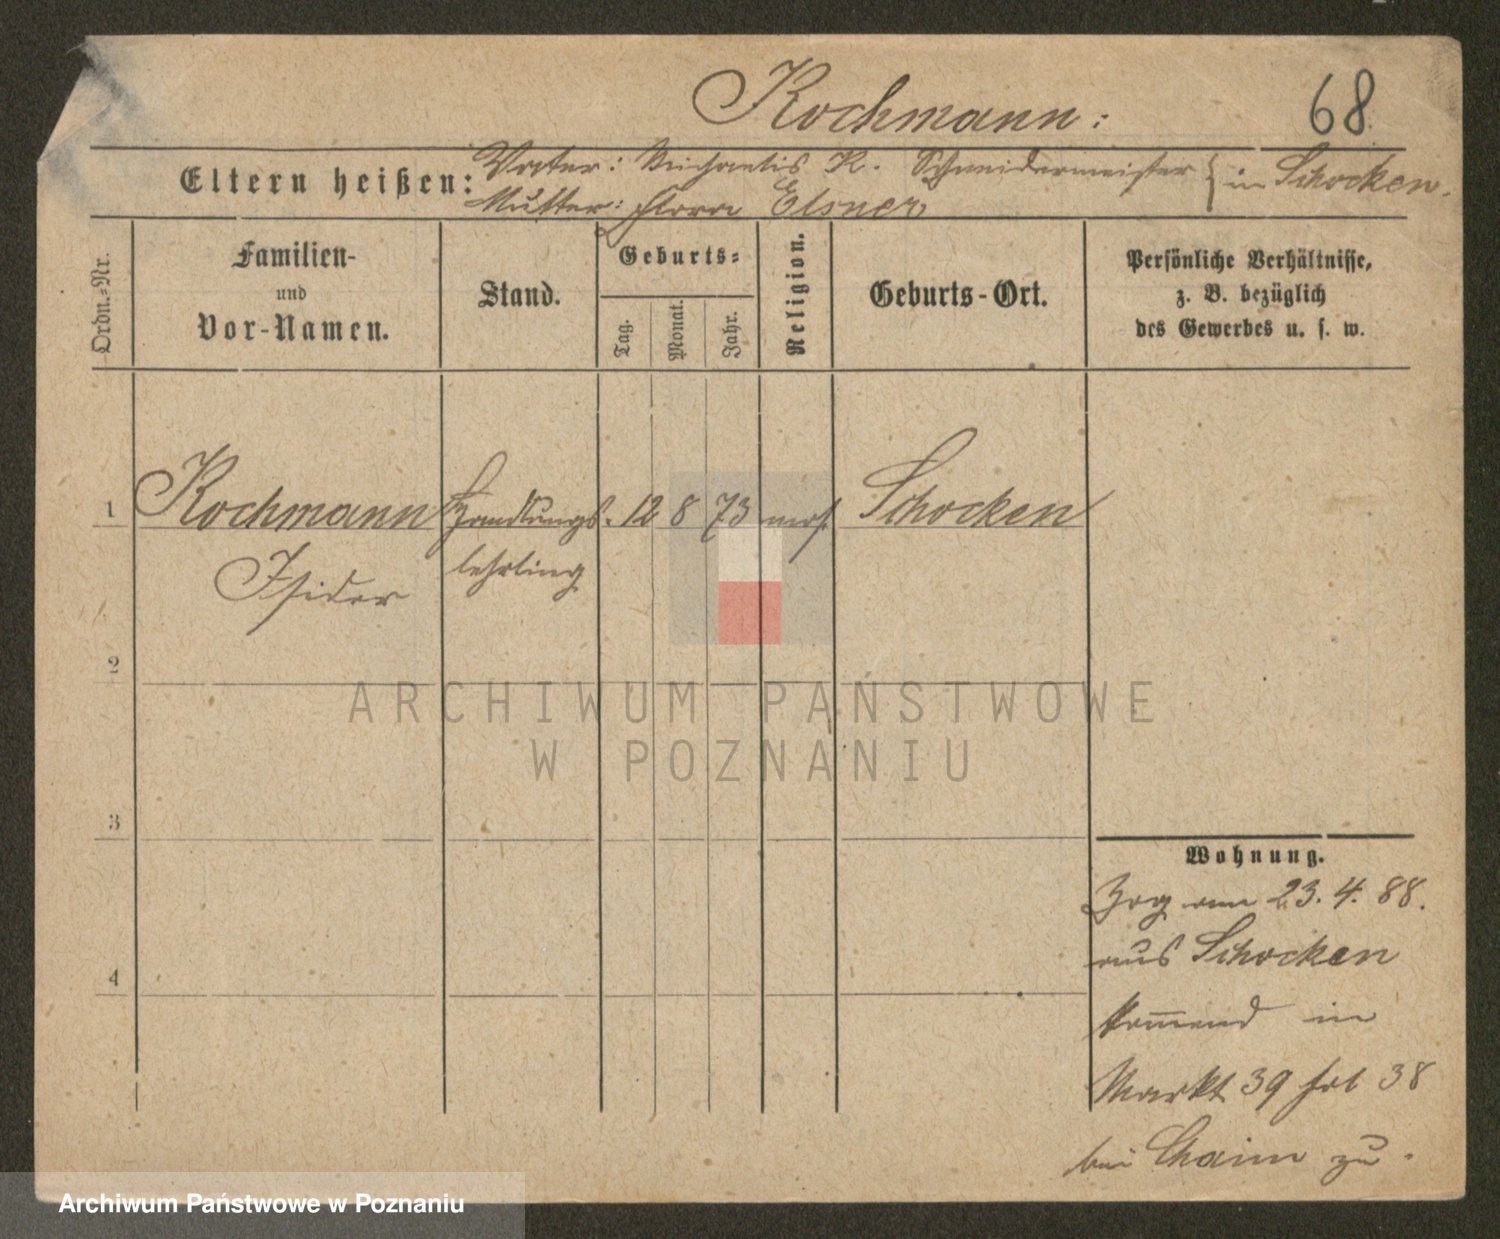 Kochmann:
68
Eltern heißen:
Vater: Michaelis K. Schneidermeister } in Schocken.
Mutter: Flora Elsner
Ordn.-Nr.
Familien-
und
Vor-Namen.
Stand.
Geburts-
Tag.
Monat.
Jahr.
Religion.
Geburts-Ort.
Persönliche Verhältnisse,
z. B. bezüglich
des Gewerbes u. s. w.
1 Kochmann Handlungs- 12 8 73 mos. Schocken
Isidor lehrling
2
3
4
Wohnung.
Zog am 23. 4. 88.
aus Schocken
kom̅end in
Markt 39 38
bei Chaim zu.
ARCHIWUM PAŃSTWOWE
W POZNANIU
Archiwum Państwowe w Poznaniu